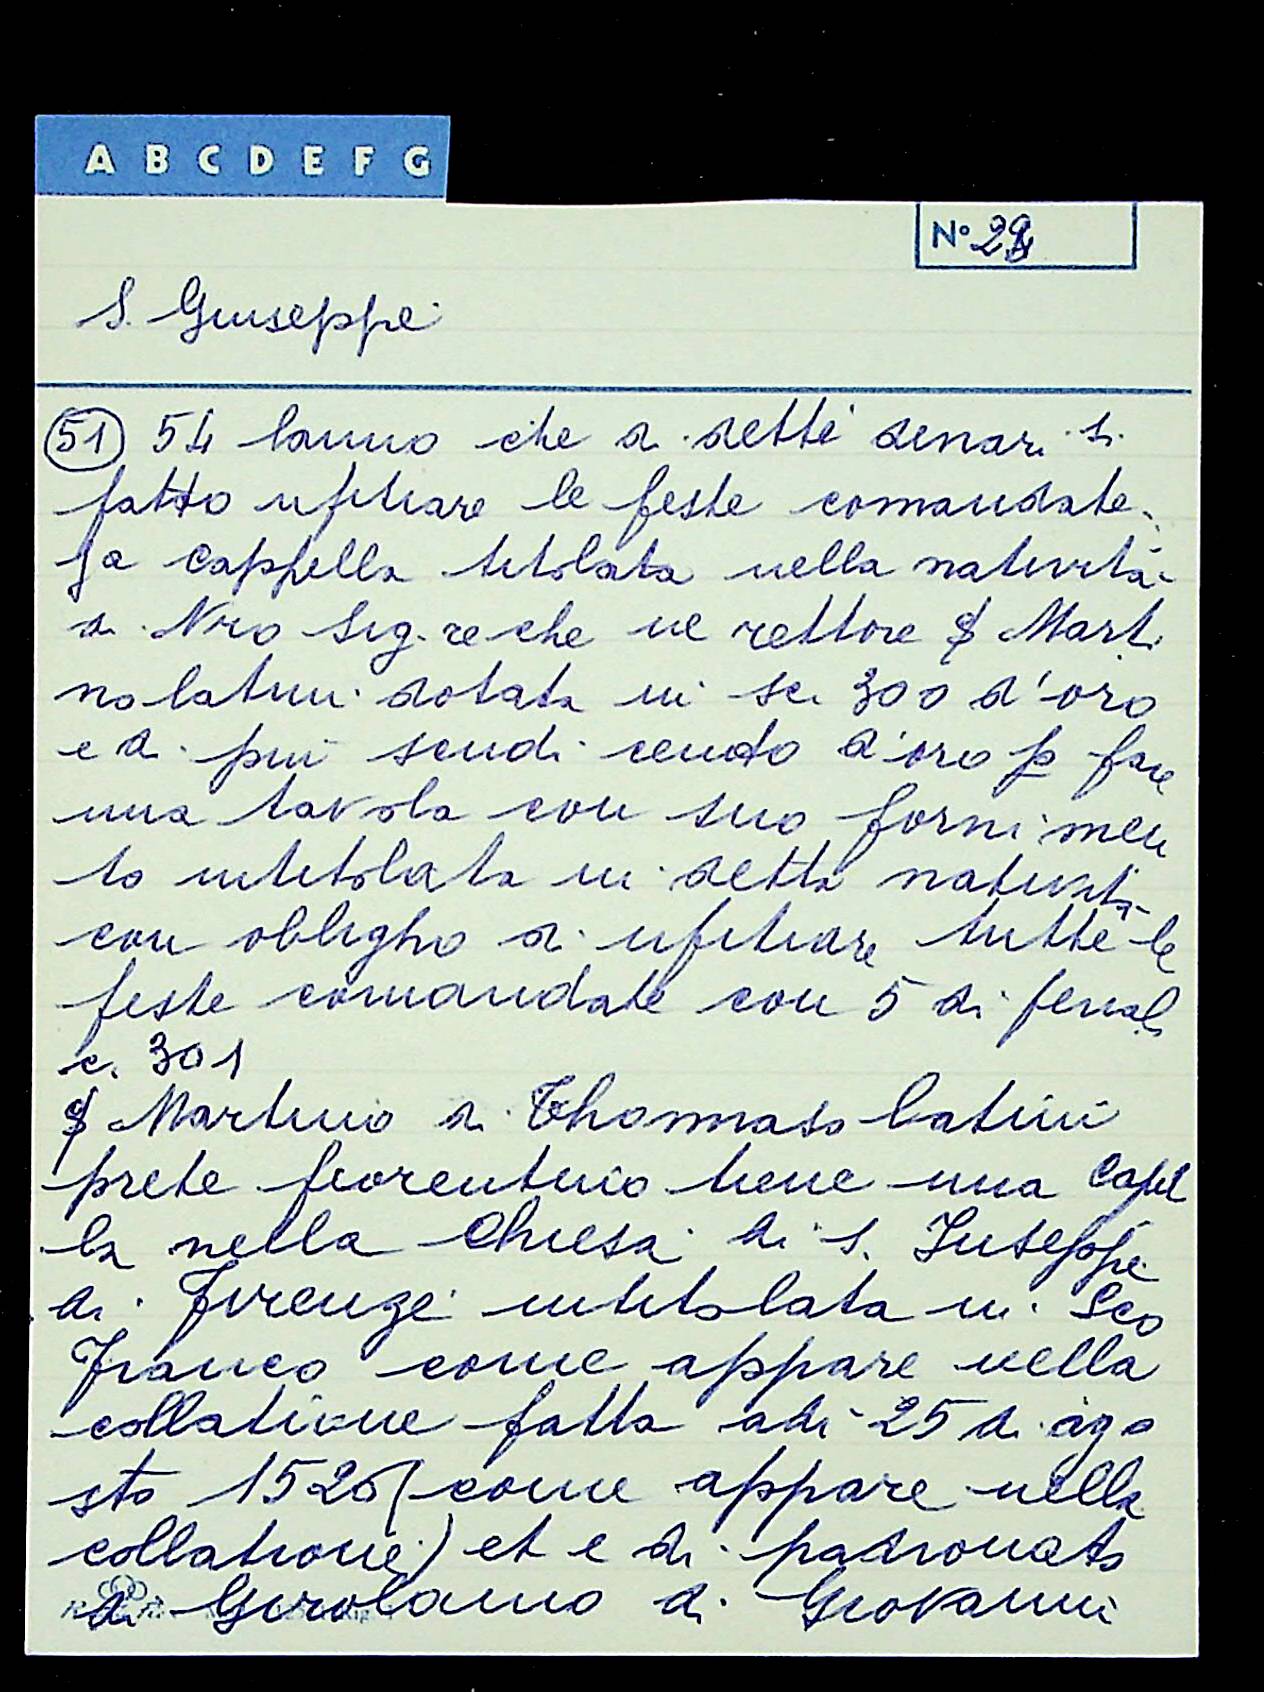 A B C D E F G
N° 28
S. Giuseppe
(51) 54 lanno che di detti denari si
fatto ufitiare le feste comandate.
Ia Cappella titolata nella natività
di Nro Sig.re che ne rettore § Marti
no latini dotata in sc. 300 d'oro
e di piu scudi cento d'oro p fare
una tavola con suo fornimen
to intitolata in detta natività
con obligho di ufitiare tutte le
feste comandate con 5 di feriali
c. 301
§ Martino di Thommaso latini
prete fiorentino tiene una Capel
la nella Chiesa di S. Juseppe
di Firenze intitolata in Sco
Franco come appare nella
collatione fatta adi 25 di ago
sto 1526 (come appare nella
collatione) et e di patronato
di Girolamo di Giovanni